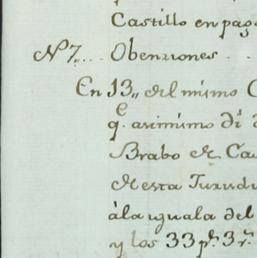 Castillo en pag
Nº 7.... Obenziones . .
En 13,, del mismo
q.e asimismo di
Brabo de Ca
de esta Jurud
àla iguala del
y los 33 p.s 3 r.s